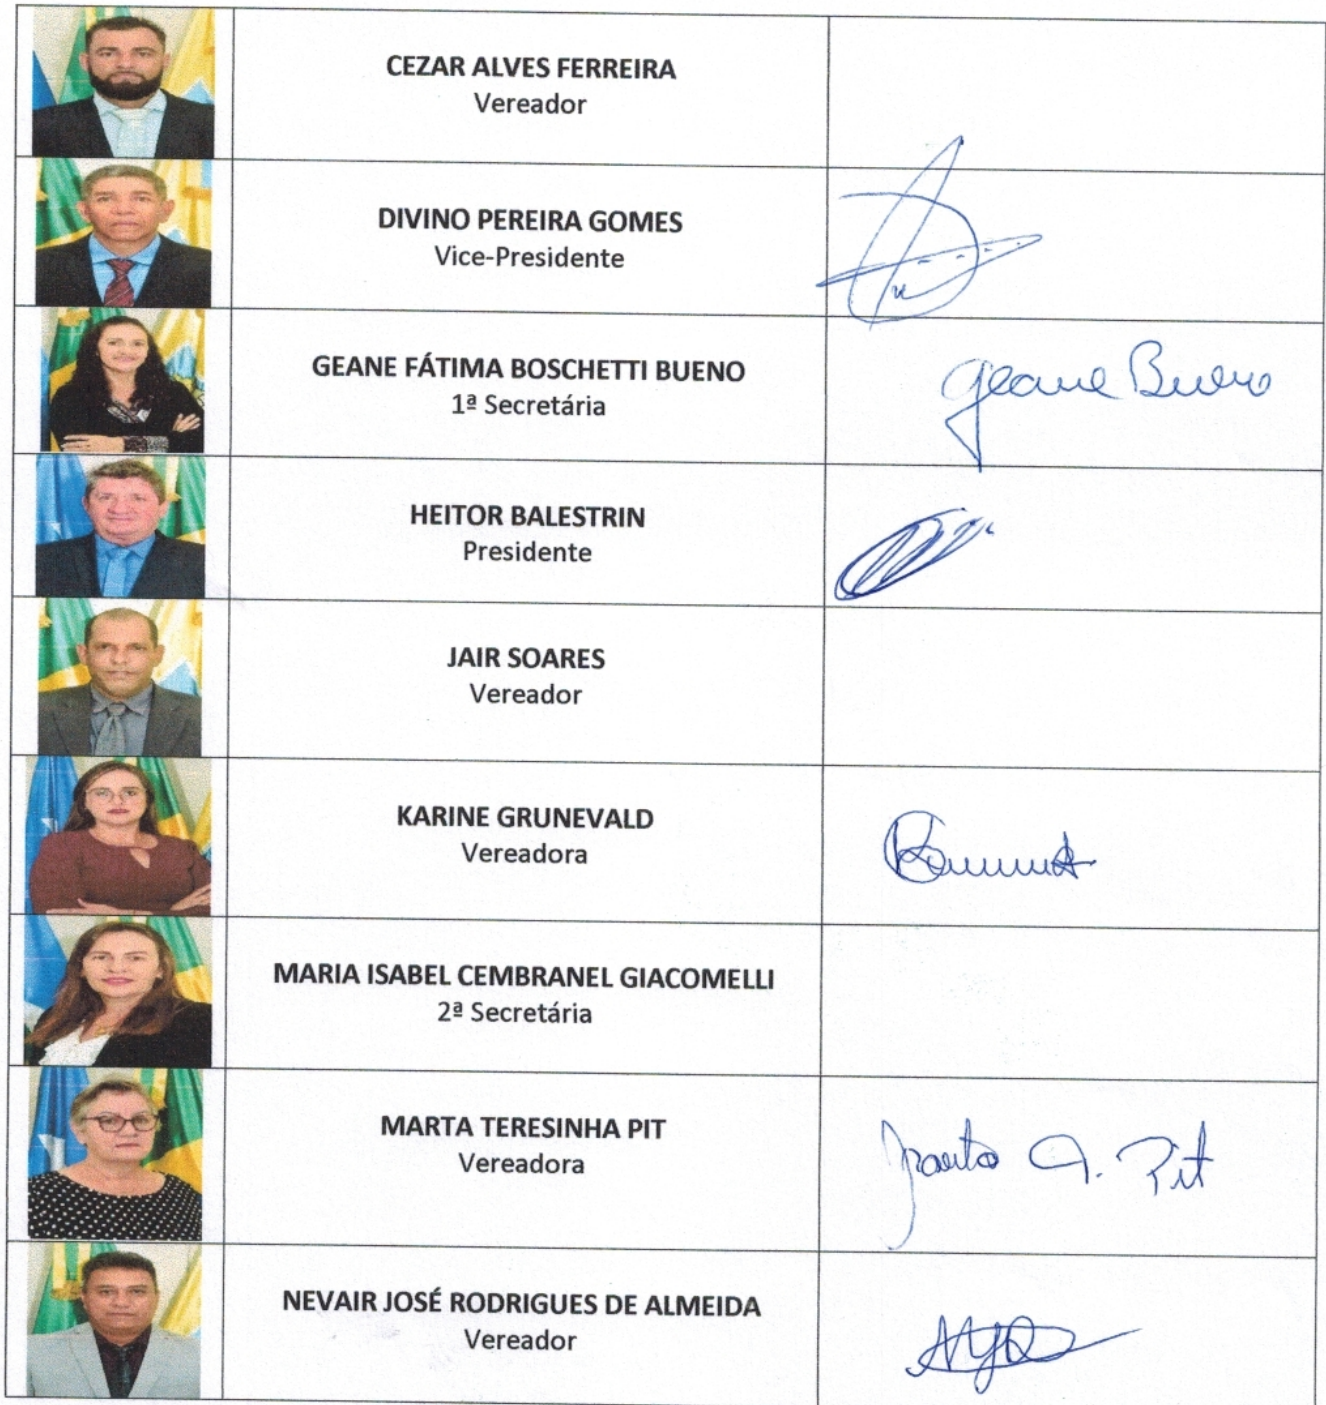 CEZAR ALVES FERREIRA
Vereador
DIVINO PEREIRA GOMES
Vice-Presidente
GEANE FÁTIMA BOSCHETTI BUENO
1ª Secretária
Geane Bueno
HEITOR BALESTRIN
Presidente
JAIR SOARES
Vereador
KARINE GRUNEVALD
Vereadora
MARIA ISABEL CEMBRANEL GIACOMELLI
2ª Secretária
MARTA TERESINHA PIT
Vereadora
Marta T. Pit
NEVAIR JOSÉ RODRIGUES DE ALMEIDA
Vereador